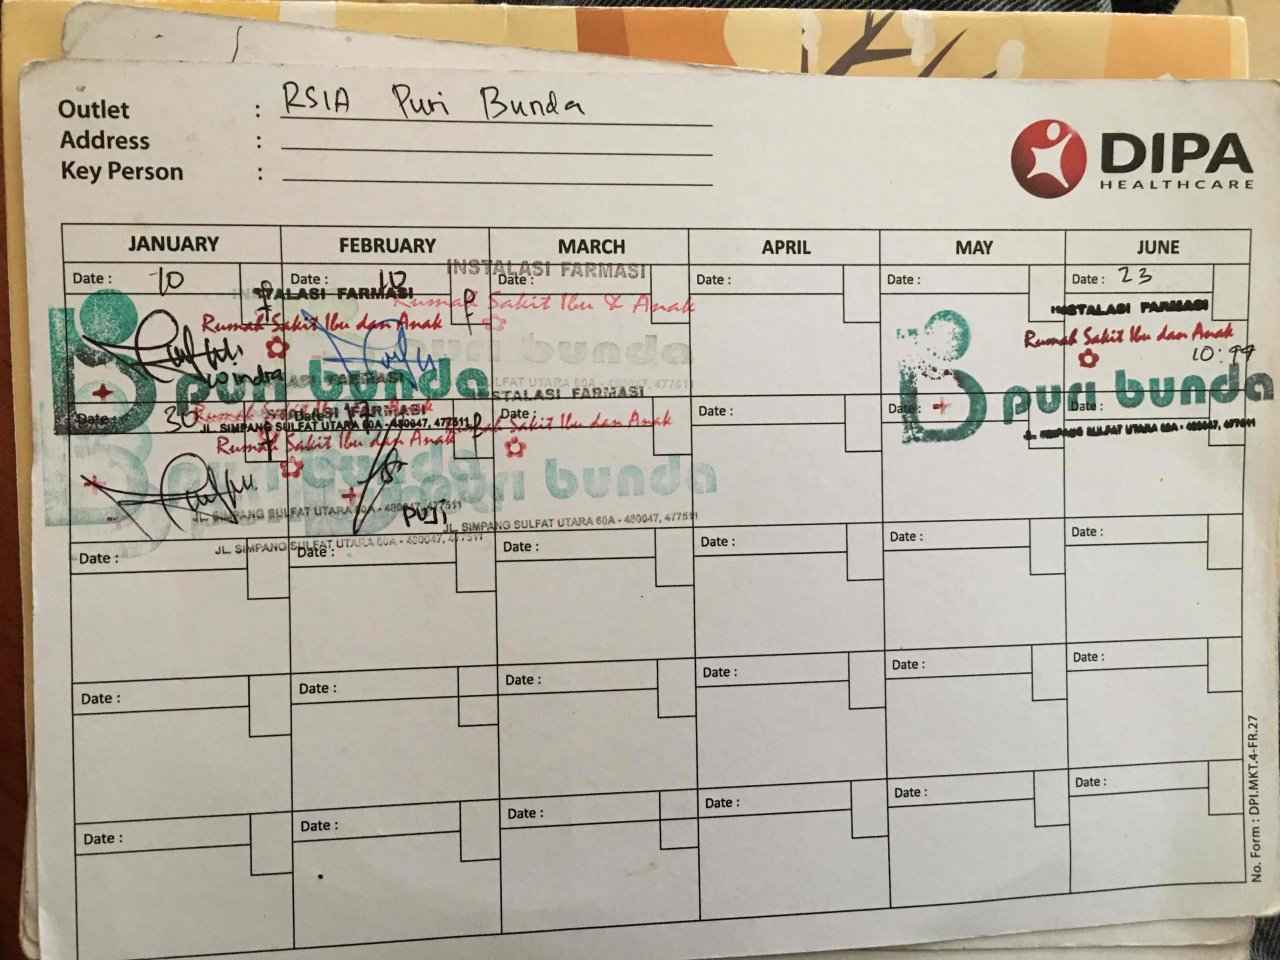 Outlet : RSIA Puri Bunda
Address :
Key Person :
DIPA
HEALTHCARE
JANUARY FEBRUARY MARCH APRIL MAY JUNE
Date : 10 Date : 10 Date : Date : Date : Date : 23
INSTALASI FARMASI
Rumah Sakit Ibu & Anak
puri bunda
INSTALASI FARMASI
Rumah Sakit Ibu dan Anak
puri bunda
JL. SIMPANG SULFAT UTARA 60A - 480047, 477511
INSTALASI FARMASI
Rumah Sakit Ibu dan Anak
puri bunda
JL. SIMPANG SULFAT UTARA 60A - 480047, 477511
Date : 30 Date : 17 Date : Date : Date : Date :
INSTALASI FARMASI
Rumah Sakit Ibu dan Anak
puri bunda
PUJI
JL. SIMPANG SULFAT UTARA 60A - 480047, 477511
JL. SIMPANG SULFAT UTARA 60A - 480047, 477511
Date : Date : Date : Date : Date : Date :
Date : Date : Date : Date : Date : Date :
Date : Date : Date : Date : Date : Date :
No. Form : DPI.MKT.4-FR.27